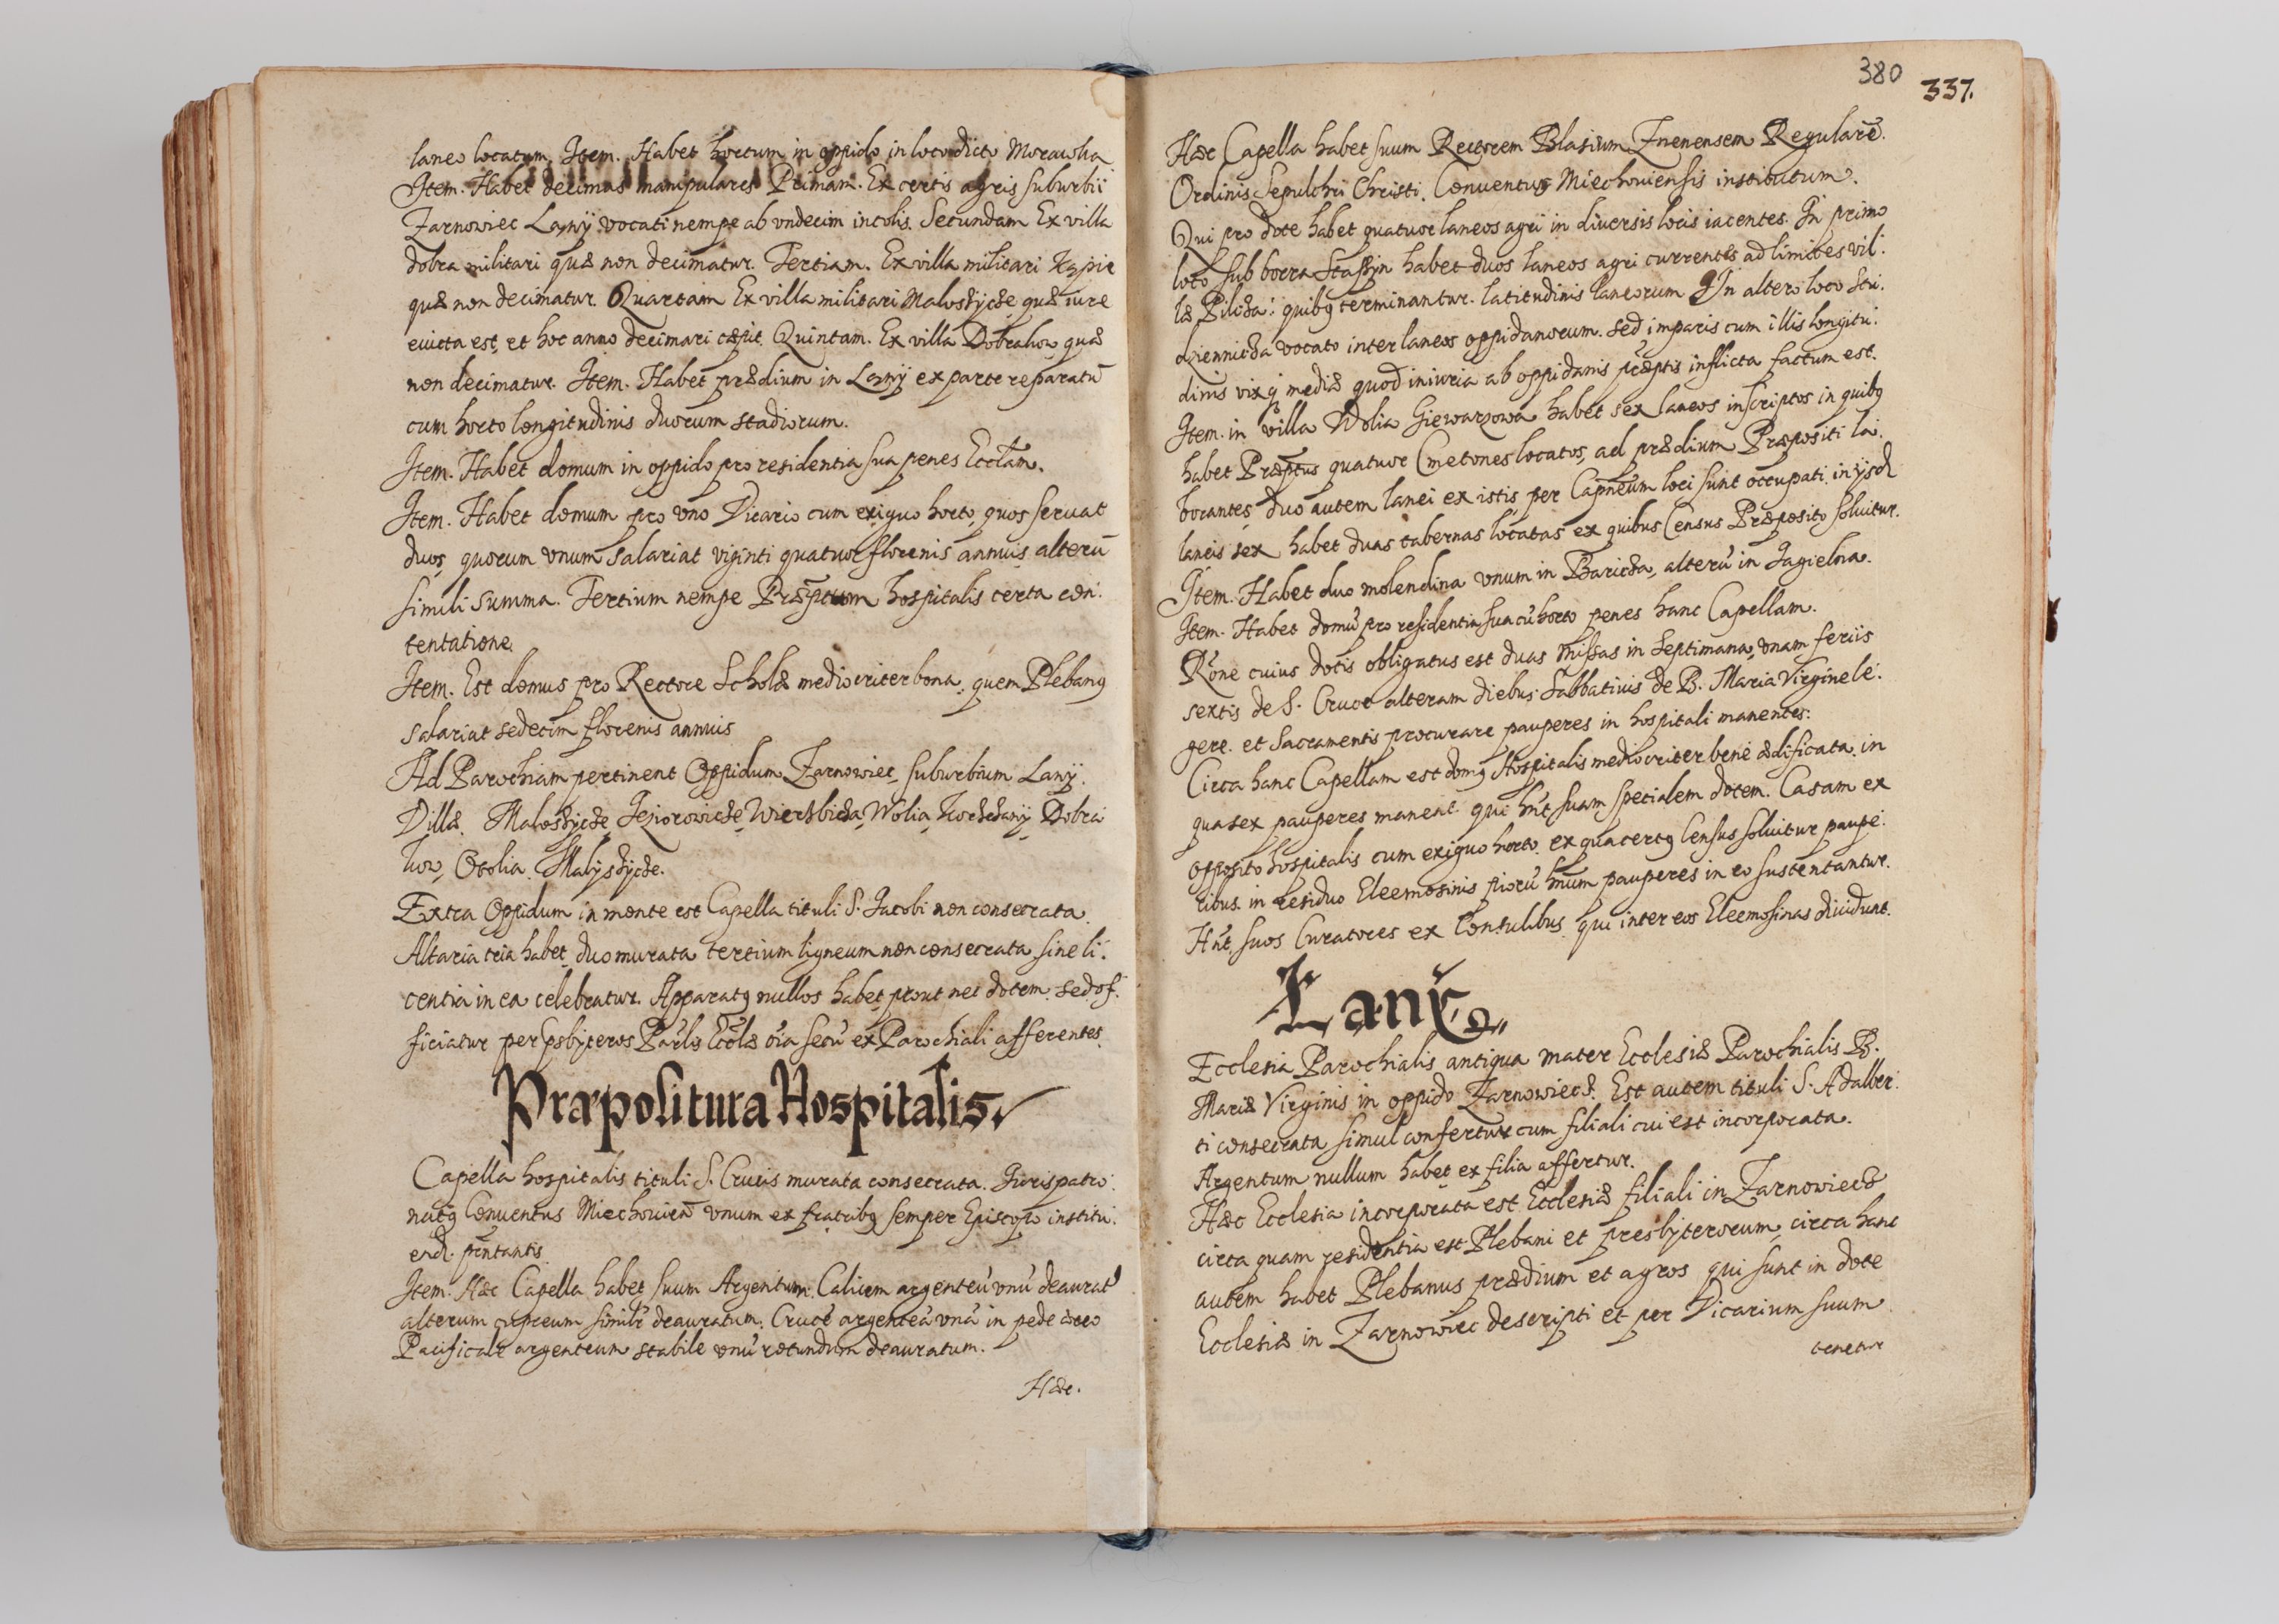 laneo locatum. Item. Habet hortum in oppido in loco dicto Morawka
Item. Habet decimas manipulares Primam. Ex certis agris suburbii
Zarnowiec Lany vocati nempe ab vndecim incolis. Secundam Ex villa
dobra militari quæ non decimatur. Tertiam. Ex villa militari Kępie
quæ non decimatur. Quartam Ex villa militari Małoszycze quæ iure
euicta est, et hoc anno decimari cæpit. Quintam. Ex villa Dobrakow quæ
non decimatur. Item. Habet prædium in Lany ex parte reparatū
cum horto longitudinis duorum stadiorum.
Item. Habet domum in oppido pro residentia sua penes Eccłam.
Item. Habet domum pro vno Vicario cum exiguo horto, quos seruat
duos, quorum vnum salariat viginti quatuor florenis annuis alterū
simili summa. Tertium nempe Præptum hospitalis certa con:
tentatione.
Item. Est domus pro Rectore Scholæ mediocriter bona, quem Plebanꝯ
salariat sedecim florenis annuis
Ad Parochiam pertinent Oppidum Zarnowiec, suburbium Lany.
Villæ. Małoszycze Jeziorowicze Wierzbicza Wolia Dobra
kow, Otolia. Małyszycze.
Extra Oppidum in monte est Capella tituli S. Jacobi non consecrata.
Altaria tria habet, duo murata tertium ligneum non consecrata sine li:
centia in ea celebratur. Apparatꝯ nullos habet prout nec dotem. sed of:
ficiatur per psbyteros Parlis Eccłæ oīa secū ex Parochiali afferentes.
Præpositura Hospitalis.
Capella hospitalis tituli S. Crucis murata consecrata. Jurispatro:
natꝯ Conuentus Miechouien̄ vnum ex fratribꝯ semper Episcopo institu:
end. pn̄tantis.
Item. Hæc Capella habet suum Argentum. Calicem argenteū vnū deaurat
alterum cupreum similr deauratum. Crucē argenteā vnā in pede æreo
Pacificale argenteum stabile vnū rotundum deauratum.
Hæc.
380
337.
Hæc Capella habet suum Rectorem Blasium Znenensem Regularē.
Ordinis Sepulchri Christi. Conuentus Miechouiensis institutum.
Qui pro dote habet quatuor laneos agri in diuersis locis iacentes. In primo
loco sub borra Stassyn habet duos laneos agri currentes ad limites vil:
læ Pilicza: quibꝯ terminantur. latitudinis laneorum In altero loco Stu:
dziennicza vocato inter laneos oppidanorum. sed imparis cum illis longitu:
dinis vix q̨ mediæ quod iniuria ab oppidanis præptis inflicta factum est.
Item. in villa Wolia Giewarzowa habet sex laneos inscriptos in quibꝯ
habet Præptus quatuor Cmetones locatos, ad prædium Præpositi la:
borantes, duo autem lanei ex istis per Capneum loci sunt occupati. in ijsd
laneis sex habet duas tabernas locatas ex quibus Census Præposito soluitur.
Item. Habet duo molendina vnum in Baricza, alterū in Jagielna.
Item. Habet domū pro residentia sua cū horto penes hanc Capellam.
Rōne cuius dotis obligatus est duas missas in Septimana, vnam feriis
sextis de S. Cruce alteram diebus Sabbatinis de B. Maria Virgine le:
gere. et Sacramentis procurare pauperes in hospitali manentes.
Circa hanc Capellam est domꝯ Hospitalis mediocriter benè ædificata. in
qua sex pauperes manent qui hn̄t suam specialem dotem. Casam ex
opposito hospitalis cum exiguo horto. ex qua certꝯ Census soluitur paupe:
ribus. in residuo Eleemosinis piorū hn̄um pauperes in eo sustentantur.
Hn̄t suos Curatores ex Consulibus qui inter eos Eleemosinas diuidunt.
Lany
Ecclesia Parochialis antiqua mater Ecclesiæ Parochialis B.
Mariæ Virginis in oppido Zarnowiecz. Est autem tituli S. Adalber:
ti consecrata simul confertur cum filiali cui est incorporata.
Argentum nullum habet ex filia affertur.
Hæc Ecclesia incorporata est Ecclesiæ filiali in Zarnowiecz
circa quam residentia est Plebani et presbyterorum, circa hanc
autem habet Plebanus prædium et agros qui sunt in dote
Ecclesiæ in Zarnowiec descripti et per Vicarium suum
tenetur